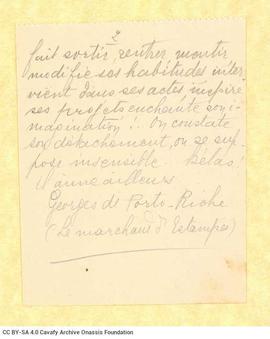 2
fait sortir, rentrer, mentir
modifie ses habitudes inter
vient dans ses actes inspire
ses projets enchante son i-
magination!.. On constate
son détachement, on se sup-
pose insensible. Hélas!
d'aimer ailleurs
Georges de Porto-Riche
(Le marchand d'Estampes)
CC BY-SA 4.0 Cavafy Archive Onassis Foundation